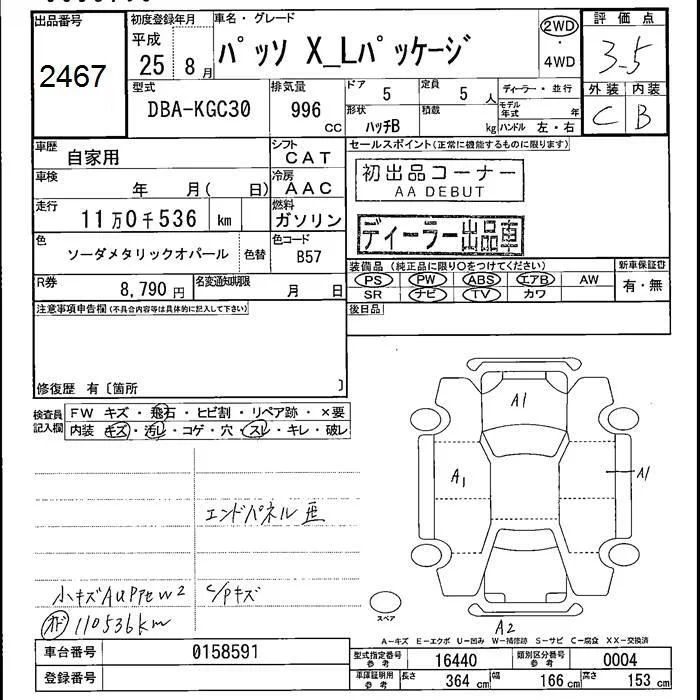 出品番号
2467
初度登録年月
平成
25 8 月
車名・グレード
パッソ X_Lパッケージ
2WD
・
4WD
評価点
3.5
外装 内装
C B
型式
DBA-KGC30
排気量
996
CC
ドア
5
定員
5 人
形状
ハッチB
積載
kg
ディーラー・並行
モデル年式 年
ハンドル 左・右
車歴
自家用
シフト
CAT
車検
年 月( 日)
冷房
AAC
走行
11万0千536 km
燃料
ガソリン
色
ソーダメタリックオパール
色替
色コード
B57
R券
8,790 円
名変通知期限
月 日
セールスポイント(正常に機能するものに限ります)
初出品コーナー
AA DEBUT
ディーラー出品車
装備品 (純正品に限り○をつけてください)
PS PW ABS エアB AW
SR ナビ TV カワ
新車保証書
有・無
後日品
注意事項申告欄(不具合内容等は具体的に記入して下さい)
修復歴 有〔箇所 〕
検査員
記入欄
FW キズ・飛石・ヒビ割・リペア跡・×要
内装 キズ・汚レ・コゲ・穴・スレ・キレ・破レ
エンドパネル歪
小キズAUPアセW2
C/Pキズ
オド 110536km
A1
A1
A1
A2
スペア
A-キズ E-エクボ U-凹み W-補修跡 S-サビ C-腐食 XX-交換済
車台番号
0158591
登録番号
型式指定番号
参考
16440
類別区分番号
参考
0004
車庫証明用
参考
長さ 364 cm 幅 166 cm 高さ 153 cm